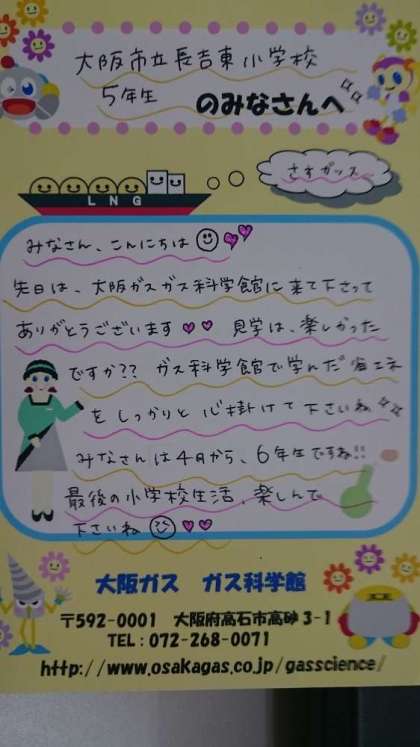 大阪市立長吉東小学校
5年生 のみなさんへ
LNG
さすガッス…
みなさん、こんにちは
先日は、大阪ガスガス科学館に来て下さって
ありがとうございます 見学は、楽しかった
ですか?? ガス科学館で学んだ省エネ
をしっかりと心掛けて下さいね
みなさんは4月から、6年生ですね!!
最後の小学校生活、楽しんで
下さいね
大阪ガス ガス科学館
〒592-0001 大阪府高石市高砂3-1
TEL:072-268-0071
http://www.osakagas.co.jp/gasscience/